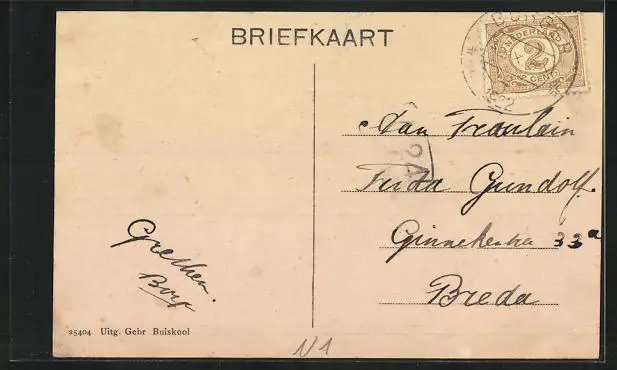 BRIEFKAART
NEDERLAND
2
CENT
Aan Fraulein
Frida Gundolf.
Ginnekenstra 33a
Breda
Grethen.
25404 Uitg. Gebr Buiskool
N1